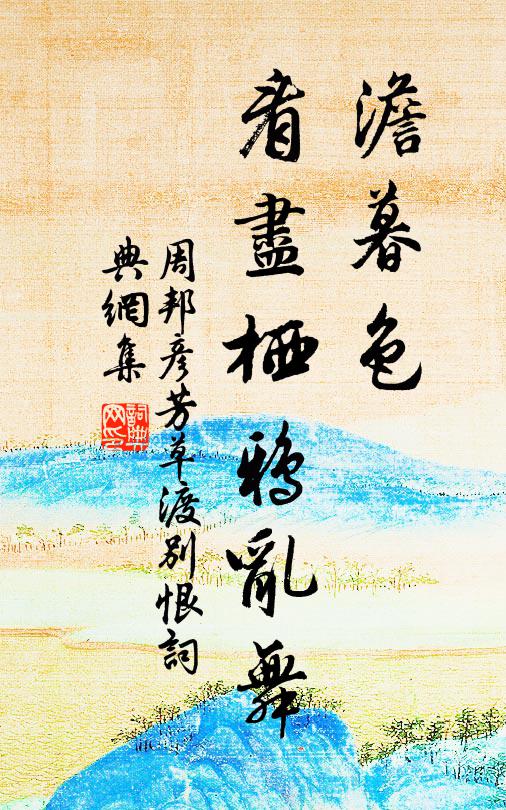 澹暮色
看盡栖鴉亂舞
周邦彥芳草渡別恨詞
典網集
詞典網印